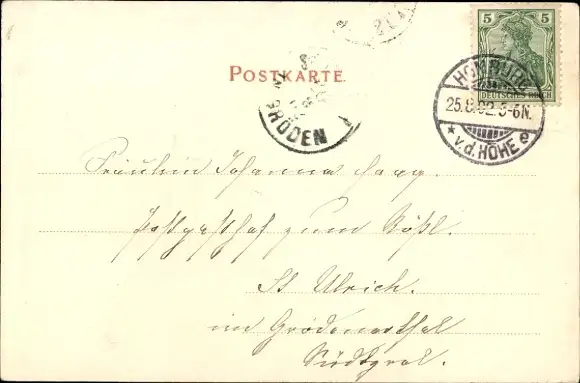 5 5
DEUTSCHES REICH
POSTKARTE
HOMBURG
25.8.02.5-6N.
* v.d.HÖHE e
RÖDEN
Fräulein Johanna Haag.
Postgasthof zum Rößl.
St Ulrich.
im Grödenerthal
Südtyrol.